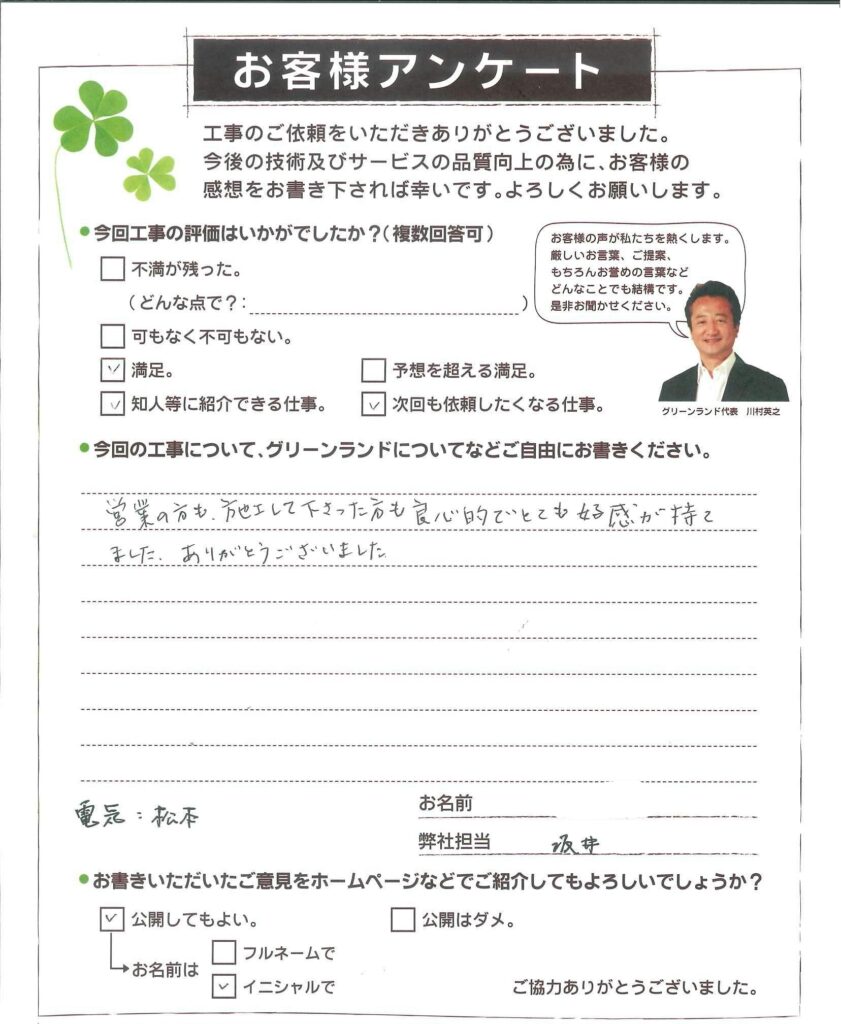 お客様アンケート
工事のご依頼をいただきありがとうございました。
今後の技術及びサービスの品質向上の為に、お客様の
感想をお書き下されば幸いです。よろしくお願いします。
●今回工事の評価はいかがでしたか?(複数回答可)
お客様の声が私たちを熱くします。
厳しいお言葉、ご提案、
もちろんお誉めの言葉など
どんなことでも結構です。
是非お聞かせください。
グリーンランド代表 川村英之
不満が残った。
(どんな点で?: )
可もなく不可もない。
満足。 予想を超える満足。
知人等に紹介できる仕事。 次回も依頼したくなる仕事。
●今回の工事について、グリーンランドについてなどご自由にお書きください。
営業の方も、施工して下さった方も良心的でとても好感が持て
ました、ありがとうございました
電気:松本
お名前
弊社担当 坂井
●お書きいただいたご意見をホームページなどでご紹介してもよろしいでしょうか?
公開してもよい。 公開はダメ。
お名前は
フルネームで
イニシャルで
ご協力ありがとうございました。